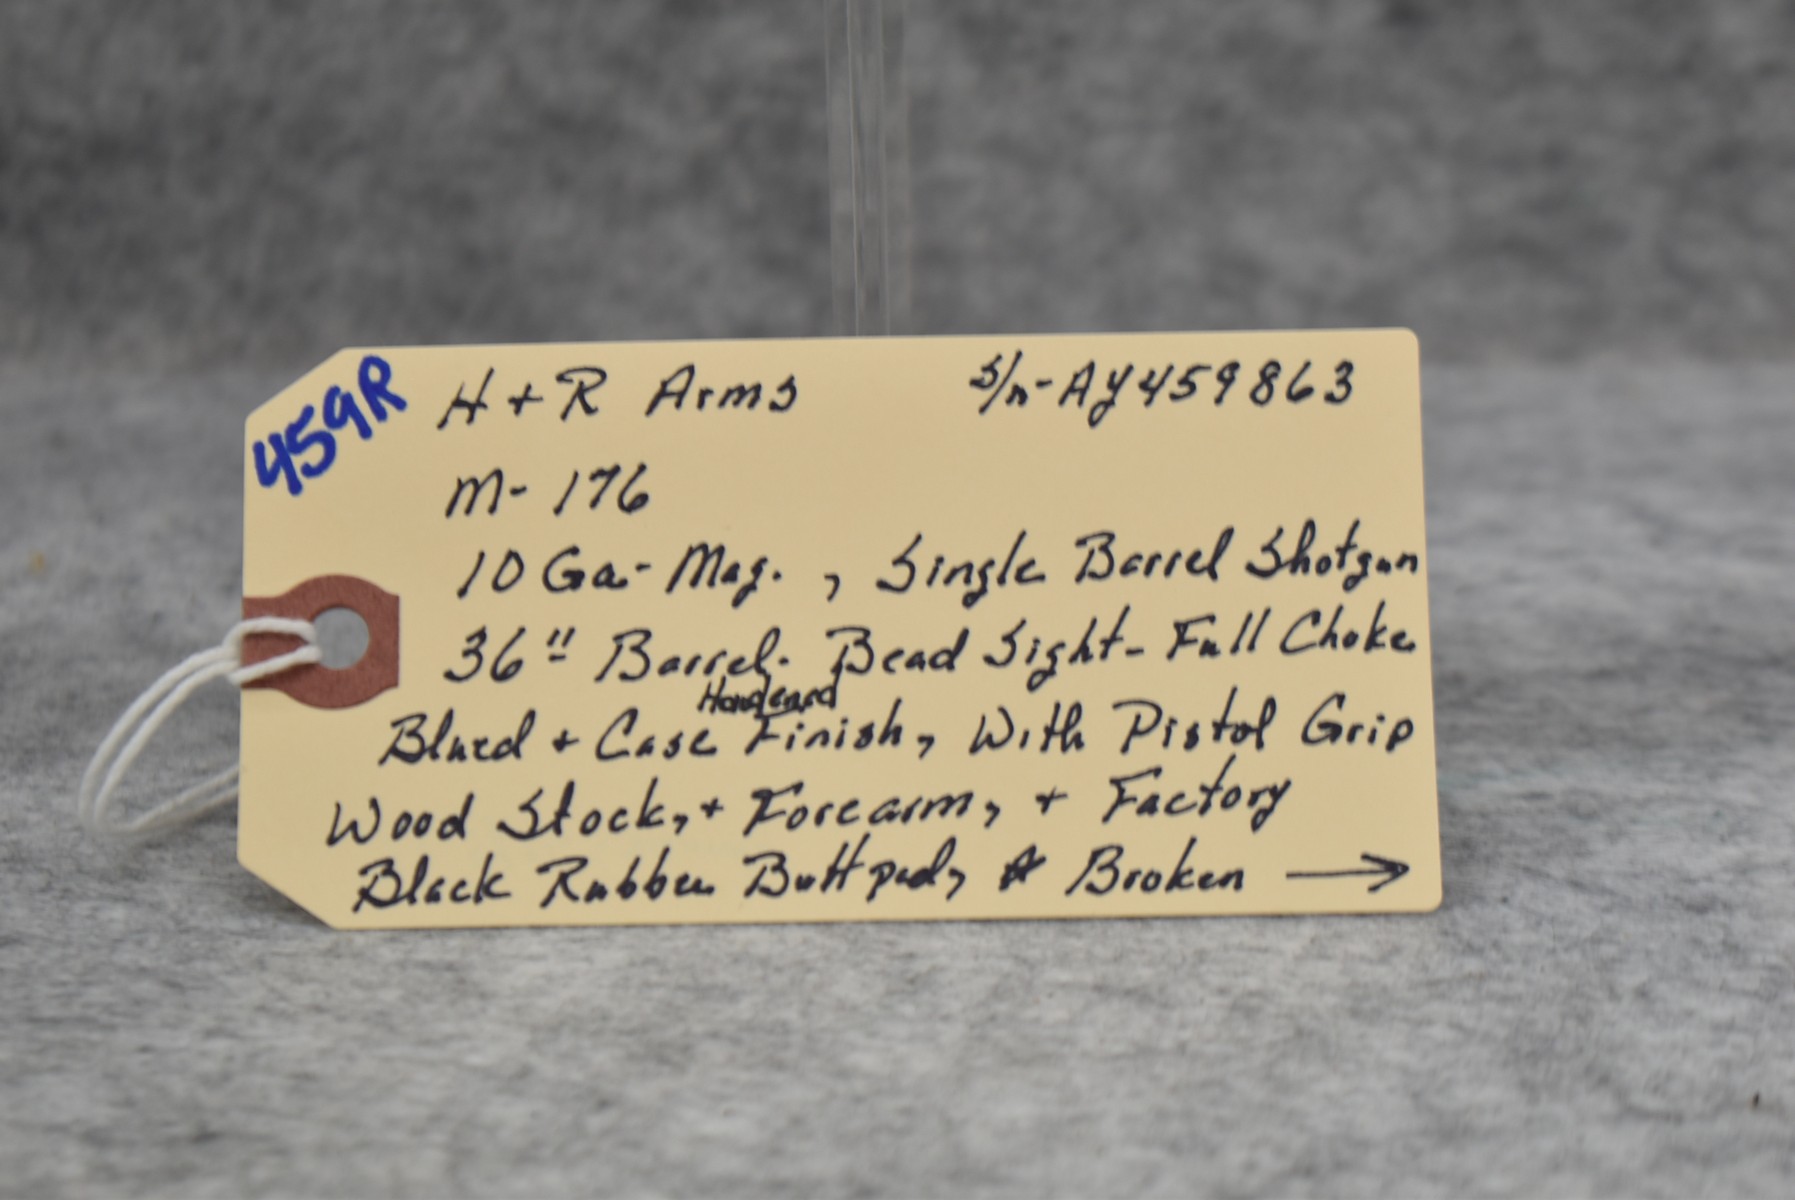 459R
H + R Arms s/n-AY459863
M-176
10 Ga.-Mag. , Single Barrel Shotgun
36" Barrel. Bead Sight-Full Choke
Hardened
Blued + Case Finish, With Pistol Grip
Wood Stock, + Forearm, + Factory
Black Rubber Buttpad, Broken →